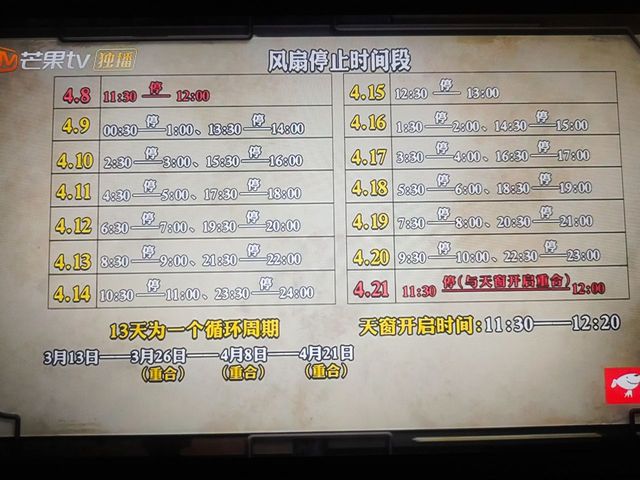 芒果tv 独播
风扇停止时间段
4.8 11:30 停 12:00
4.9 00:30 停 1:00、13:30 停 14:00
4.10 2:30 停 3:00、15:30 停 16:00
4.11 4:30 停 5:00、17:30 停 18:00
4.12 6:30 停 7:00、19:30 停 20:00
4.13 8:30 停 9:00、21:30 停 22:00
4.14 10:30 停 11:00、23:30 停 24:00
4.15 12:30 停 13:00
4.16 1:30 停 2:00、14:30 停 15:00
4.17 3:30 停 4:00、16:30 停 17:00
4.18 5:30 停 6:00、18:30 停 19:00
4.19 7:30 停 8:00、20:30 停 21:00
4.20 9:30 停 10:00、22:30 停 23:00
4.21 11:30 停(与天窗开启重合) 12:00
13天为一个循环周期
3月13日——3月26日——4月8日——4月21日
(重合) (重合) (重合)
天窗开启时间:11:30——12:20